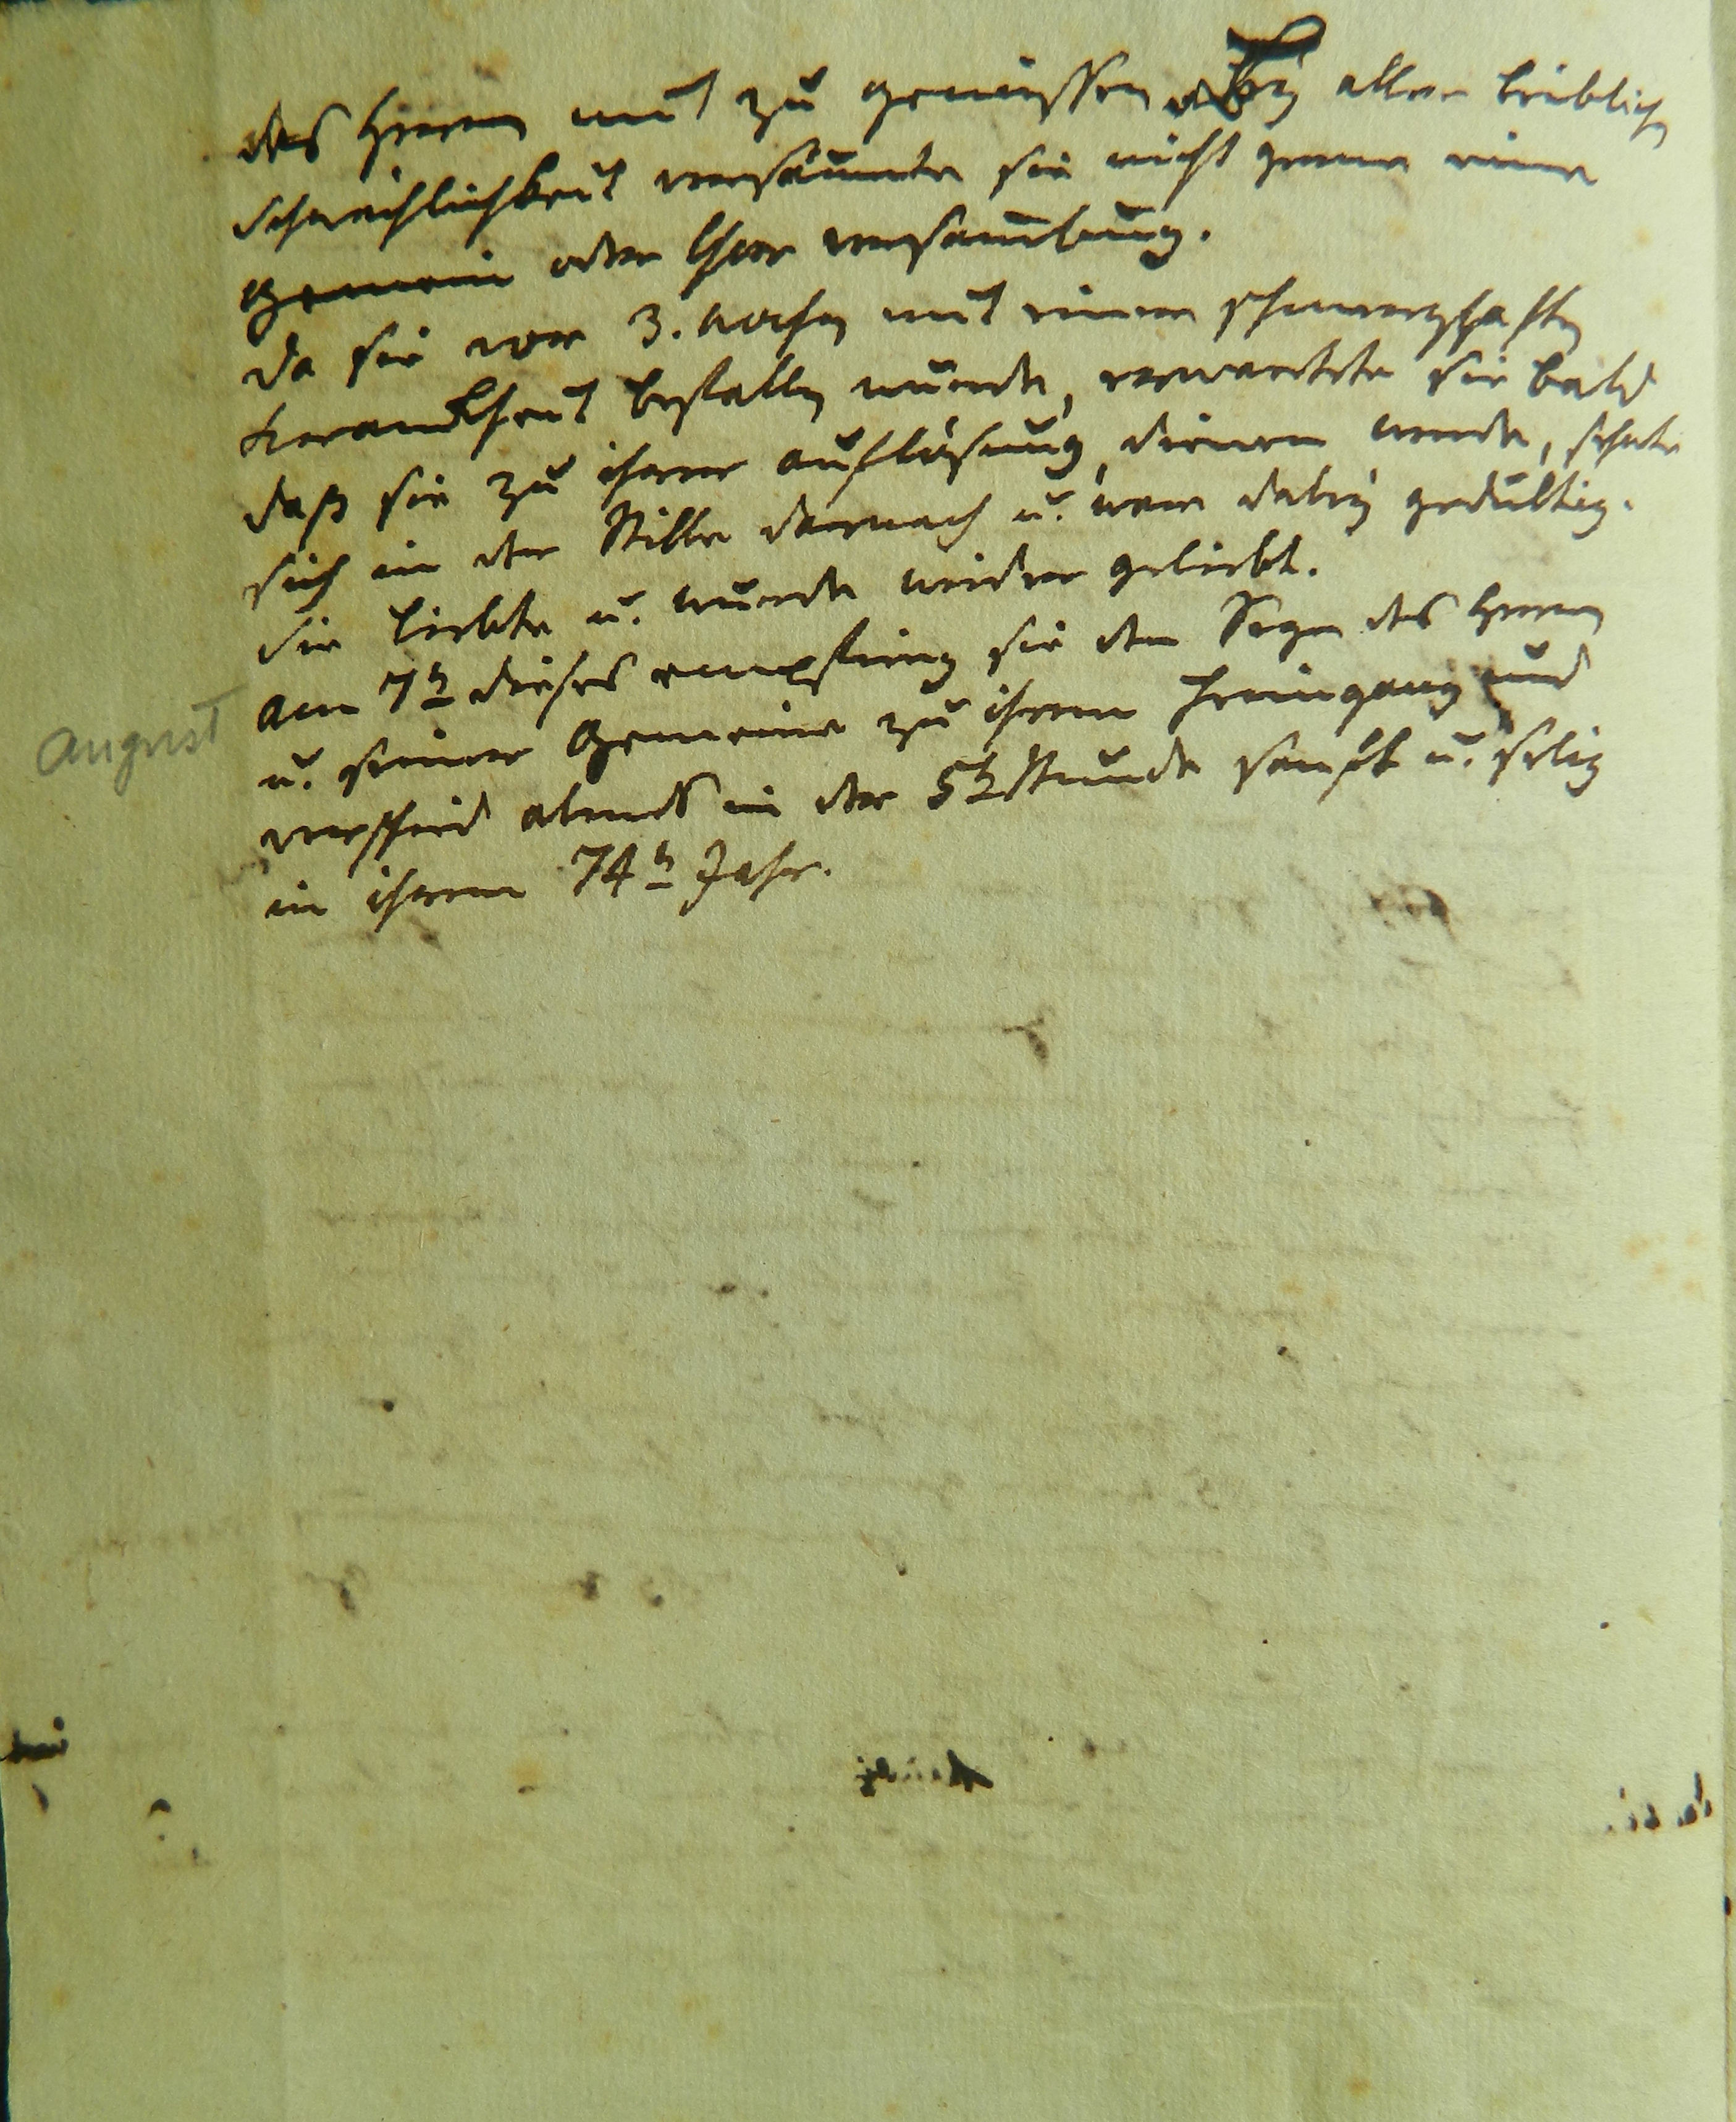 des Herrn mit zu genießen. Bey aller leiblichen
Schwächlichkeit versäumte sie nicht gerne eine
Gemein oder Chor versamlung.
Da sie vor 3. Wochen mit einer schmerzhaften
Kranckheit befallen wurde, erwartete sie bald
daß sie zu ihrer auflösung dienen werde, sehnte
sich in der Stille darnach u. war dabey gedultig.
Sie liebte u. wurde wieder geliebt.
Am 7n dieses empfing sie den Segen des Herrn
august
u. seiner Gemeine zu ihrem Heimgang und
verschied abends in der 5n Stunde sanft u. selig
in ihrem 74n Jahr.